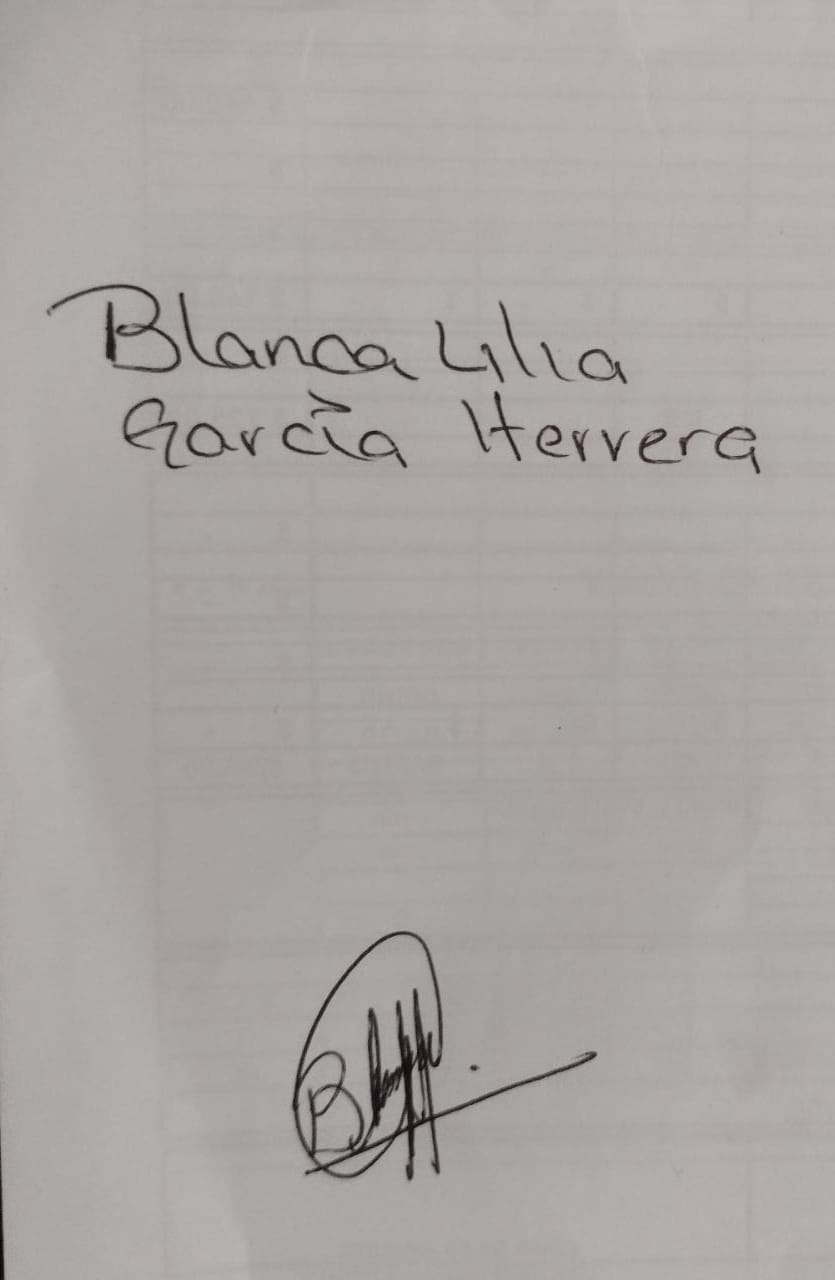 Blanca Lilia
García Herrera